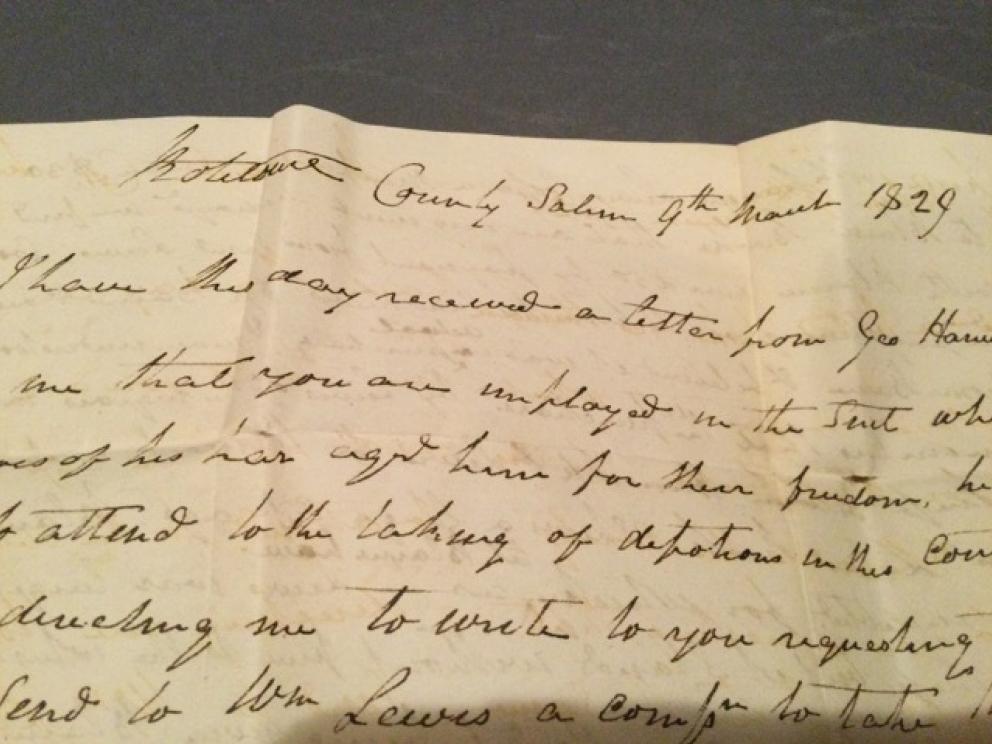 Botetourt County Salem 9th March 1829
I have this day received a letter from Geo
me that you are imployed in the Suit
of his has agst him for their freedom, he
attend to the taking of depotions in this
directing me to write to you requesting
Send to Wm Lewis a compn to take